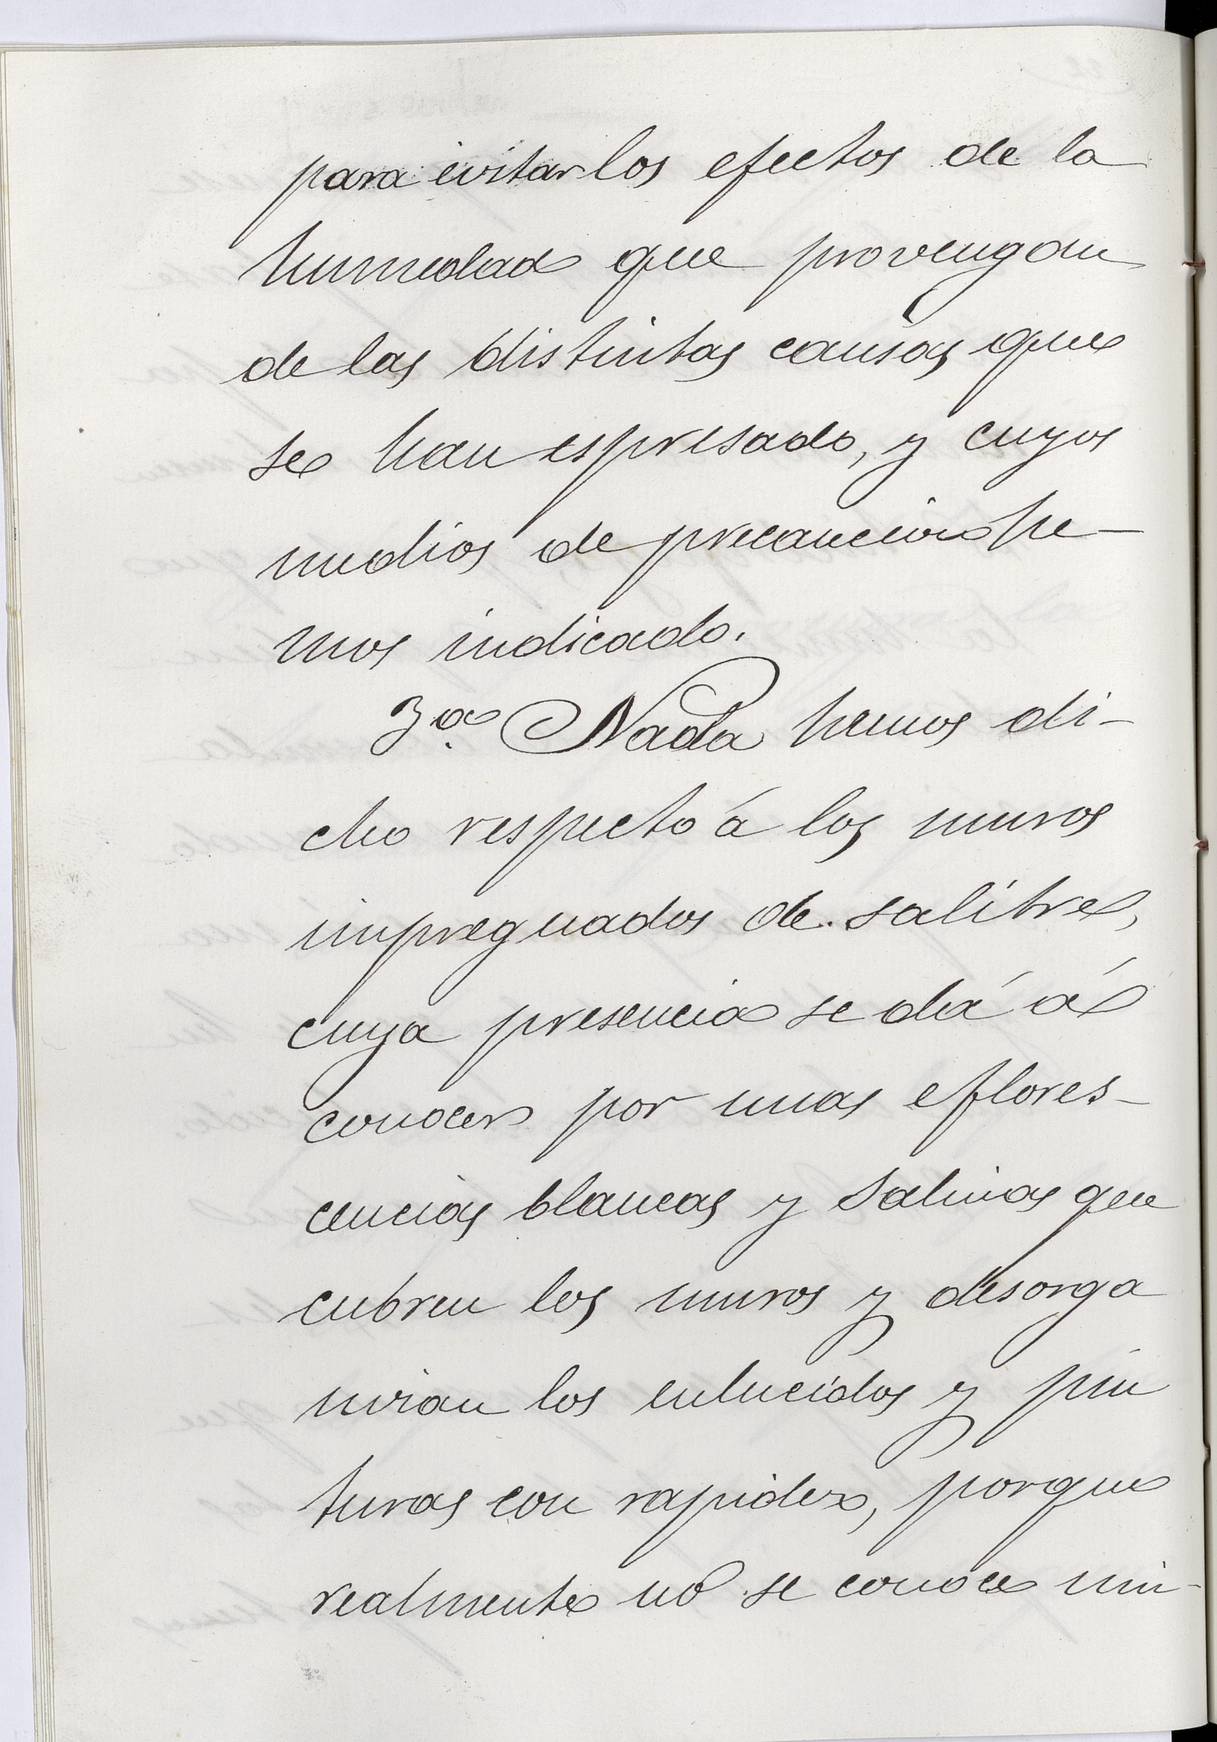 para evitar los efectos de la
humedad que provengan
de las distintas causas que
se han espresado, y cuyos
medios de precaucion he-
mos indicado.
3ª. Nada hemos di-
cho respecto á los muros
impregnados de salitre,
cuya presencia se dá á
conocer por unas eflores-
cencias blancas y salinas que
cubren los muros y desorga
nizan los enlucidos y pin
turas con rapidez, porque
realmente no se conoce nin-